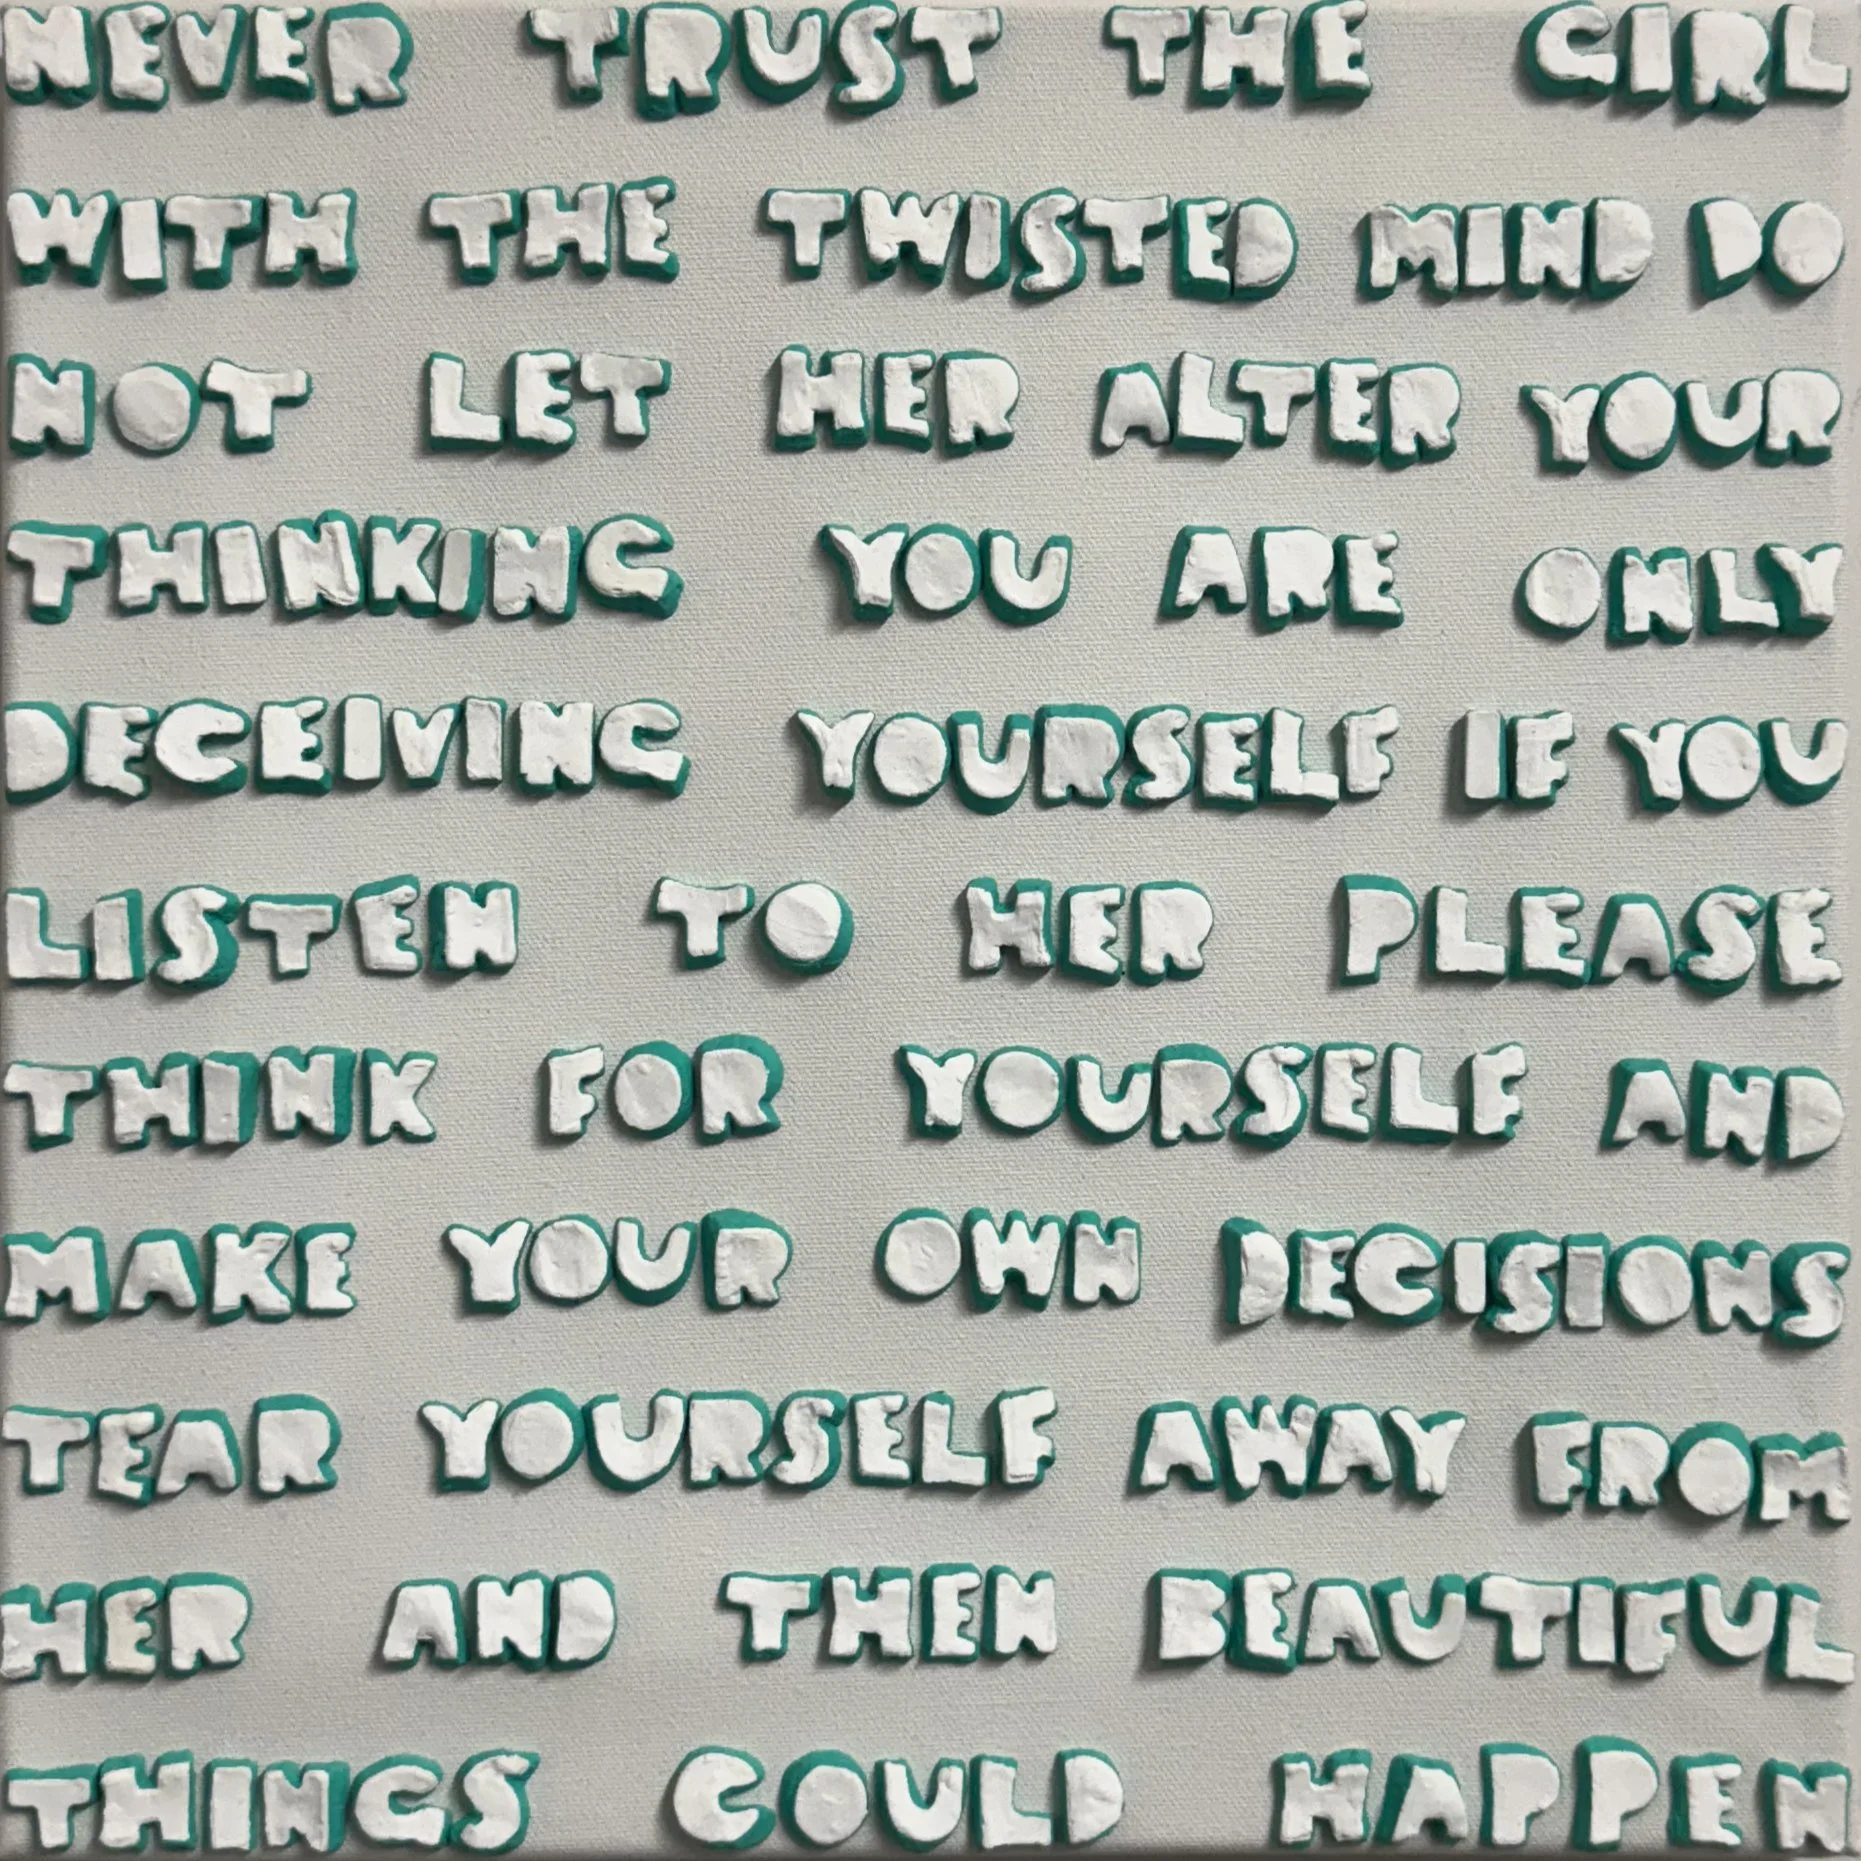 NEVER TRUST THE GIRL
WITH THE TWISTED MIND DO
NOT LET HER ALTER YOUR
THINKING YOU ARE ONLY
DECEIVING YOURSELF IF YOU
LISTEN TO HER PLEASE
THINK FOR YOURSELF AND
MAKE YOUR OWN DECISIONS
TEAR YOURSELF AWAY FROM
HER AND THEN BEAUTIFUL
THINGS COULD HAPPEN